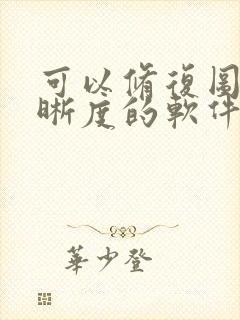 可以脩復圖
晰度的軟件
華少登